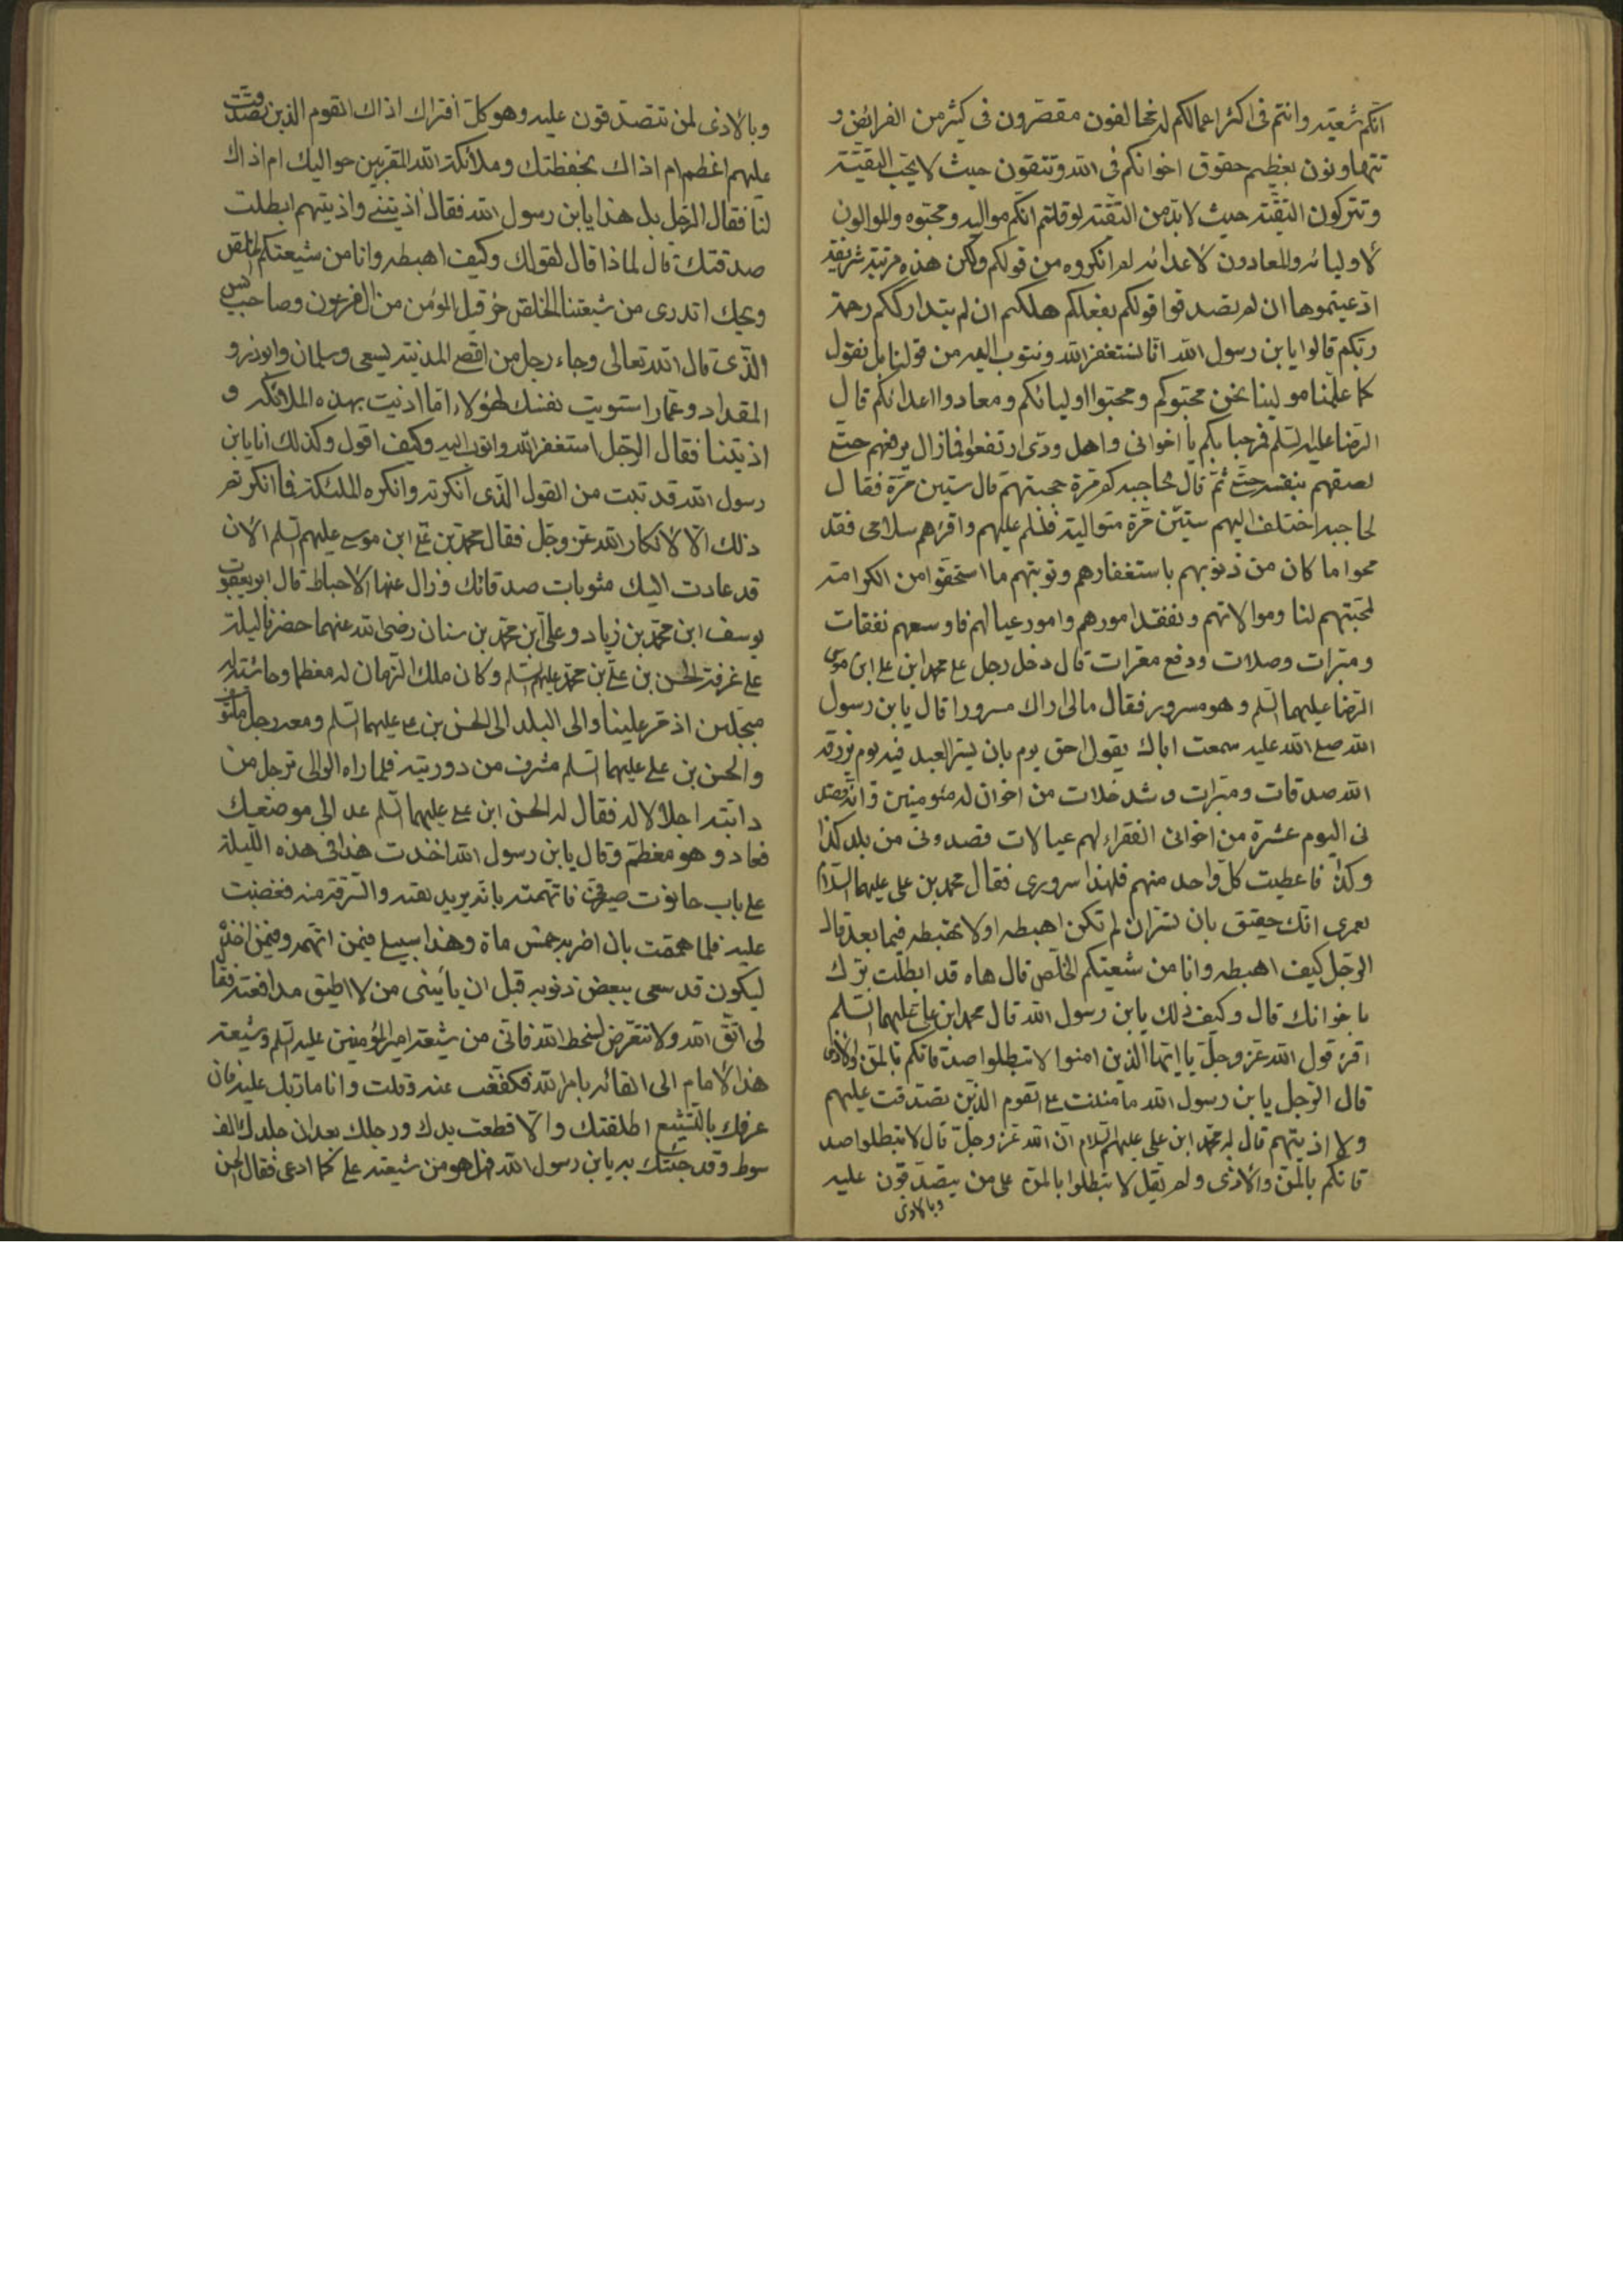 انكم شيعته وانتم فى اكثر اعمالكم له مخالفون مقصرون فى كثير من الفرائض و
تتهاونون بعظيم حقوق اخوانكم فى الله وتتقون حيث لا يجب التقية
وتتركون التقية حيث لابد من التقية لو قلتم انكم مواليه ومحبوه والموالون
لاوليائه والمعادون لاعدائه لم انكره من قولكم ولكن هذه مرتبة شريفة
ادعيتموها ان لم تصدقوا قولكم بفعلكم هلكتم ان لم يتدارككم رحمة
ربكم قالوا يابن رسول الله انا نستغفر الله ونتوب اليه من قولنا بل نقول
كما علمنا مولينا نحن محبوكم ومحبوا اوليائكم ومعادوا اعدائكم قال
الرضا عليه السلم فمرحبا بكم يا اخوانى واهل ودى ارتفعوا فما زال يرفعهم حتى
لصقهم بنفسه ثم قال لحاجبه كم مرة حجبتهم قال ستين مرة فقال
لحاجبه اختلف اليهم ستين مرة متوالية فسلم عليهم واقرءهم سلامى فقد
محوا ما كان من ذنوبهم باستغفارهم وتوبتهم ما استحقوا من الكرامة
لمحبتهم لنا وموالاتهم وتفقد امورهم وامور عيالهم فاوسعهم نفقات
ومبرات وصلات ودفع معرات قال دخل رجل على محمد ابن على ابن موسى
الرضا عليهما السلم وهو مسرور فقال مالى اراك مسرورا قال يابن رسول
الله صلى الله عليه سمعت اباك يقول احق يوم بان يسر العبد فيه يوم يرزقه
الله صدقات ومبرات و خلات من اخوان له مؤمنين وانه قصد
نى اليوم عشرة من اخوانى الفقراء لهم عيالات قصدونى من بلد كذا
وكذا فاعطيت كل واحد منهم فلهذا سرورى فقال محمد بن على عليهما السلام
لعمرى انك حقيق بان تسر ان لم تكن احبطه اولا تحبطه فيما بعد قال
الرجل كيف احبطه وانا من شيعتكم الخلص قال هاه قد ابطلت برك
باخوانك قال وكيف ذلك يابن رسول الله قال محمد ابن على عليهما السلم
اقرء قول الله عز وجل يا ايها الذين امنوا لا تبطلوا صدقاتكم بالمن والاذى
قال الرجل يابن رسول الله ما مننت على القوم الذين تصدقت عليهم
ولا اذيتهم قال له محمد ابن على عليهم السلام ان الله عز وجل قال لا تبطلوا صد
قاتكم بالمن والاذى ولم يقل لا تبطلوا بالمن على من يتصدقون عليه
وبالاذى
وبالاذى لمن تتصدقون عليه وهو كل افتراك اذاك القوم الذين تصدقت
عليهم اعظم ام اذاك بحفظتك وملائكة الله المقربين حواليك ام اذاك
لنا فقال الرجل بل هذا يابن رسول الله فقال اذيتنى واذيتهم ابطلت
صدقتك قال لماذا قال لقولك وكيف احبطه وانا من شيعتكم الخلص
ويحك اتدرى من شيعتنا الخلص حزقيل المؤمن من ال فرعون وصاحب يس
الذى قال الله تعالى وجاء رجل من اقصى المدينة يسعى وسلمان وابوذر و
المقداد وعمار استويت نفسك لهؤلاء اما اذيت بهذه الملائكه و
اذيتنا فقال الرجل استغفر الله واتوب اليه وكيف اقول وكذلك انا يابن
رسول الله قد تبت من القول الذى انكرته وانكره الملئكة فما انكرتم
ذلك الا لانكار الله عز وجل فقال محمد بن على ابن موسى عليهم السلم الان
قد عادت اليك مثوبات صدقاتك وزال عنها الاحباط قال ابو يعقوب
يوسف ابن محمد بن زياد وعلى ابن محمد بن سنان رضى الله عنهما حضرنا ليلة
على غرفة الحسن بن على بن محمد عليهم السلم وكان ملك الزمان له معظما وحاشيته له
مبجلين اذ مر علينا والى البلد الى الحسن بن على عليهما السلم ومعه رجل مكتوف
والحسن بن على عليهما السلم مشرف من دورنته فلما راه الوالى ترجل من
دابته اجلالا له فقال له الحسن ابن على عليهما السلم عد الى موضعك
فعاد وهو معظم وقال يابن رسول الله اخذت هذا فى هذه الليلة
على باب حانوت صيرفى فاتهمته بانه يريد نقبه والسرقة منه فقبضت
عليه فلما هممت بان اضربه خمس ماة وهذا سبيلى فيمن اتهمه وفيمن اخذه
ليكون قد سعى ببعض ذنوبه قبل ان ياتينى من لا اطيق مدافعته فقا
لى اتق الله ولا تتعرض لسخط الله فانى من شيعة امير المؤمنين عليه السلم وشيعة
هذا الامام الى القائم بامر الله فكففت عنه وقلت وانا مار بك عليه فان
عرفك بالتشيع اطلقتك والا قطعت يدك ورجلك بعد ان جلدك الف
سوط وقد جئتك به يابن رسول الله فهل هو من شيعته على كما ادعى فقال الحسن